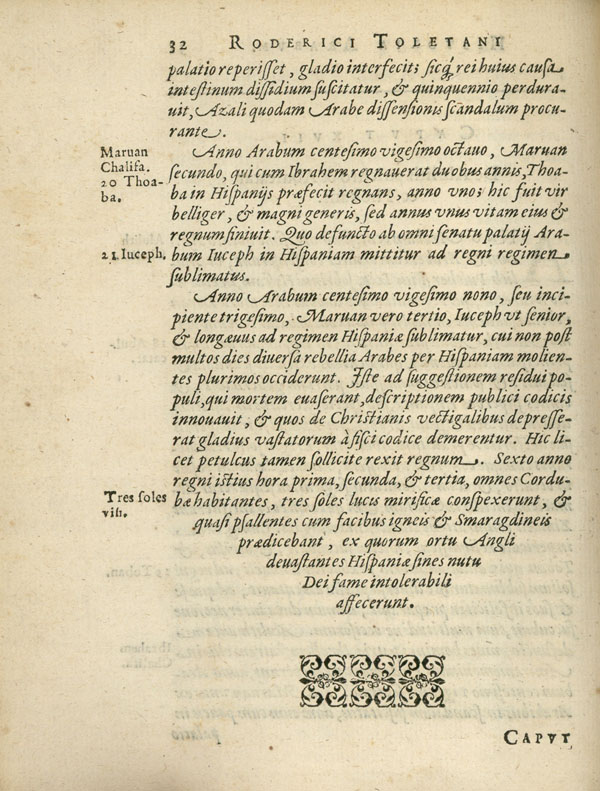 32 RODERICI TOLETANI
palatio reperisset, gladio interfecit; sicq́ rei huius causa
intestinum dissidium suscitatur, & quinquennio perdura-
uit, Azali quodam Arabe dissensionis scandalum procu-
rante.
Maruan
Chalifa.
20 Thoa-
ba.
Anno Arabum centesimo vigesimo octauo, Maruan
secundo, qui cum Ibrahem regnauerat duobus annis, Thoa-
ba in Hispanijs præfecit regnans, anno vno; hic fuit vir
belliger, & magni generis, sed annus vnus vitam eius &
regnum finiuit. Quo defuncto ab omni senatu palatij Ara-
21. Iuceph.
bum Iuceph in Hispaniam mittitur ad regni regimen
sublimatus.
Anno Arabum centesimo vigesimo nono, seu inci-
piente trigesimo, Maruan vero tertio, Iuceph vt senior,
& longæuus ad regimen Hispaniæ sublimatur, cui non post
multos dies diuersa rebellia Arabes per Hispaniam molien-
tes plurimos occiderunt. Iste ad suggestionem residui po-
puli, qui mortem euaserant, descriptionem publici codicis
innouauit, & quos de Christianis vectigalibus depresse-
rat gladius vastatorum à fisci codice demerentur. Hic li-
cet petulcus tamen sollicite rexit regnum. Sexto anno
regni istius hora prima, secunda, & tertia, omnes Cordu-
Tres soles
visi.
bæ habitantes, tres soles lucis mirificæ conspexerunt, &
quasi psallentes cum facibus igneis & Smaragdineis
prædicebant, ex quorum ortu Angli
deuastantes Hispaniæ fines nutu
Dei fame intolerabili
affecerunt.
CAPVT